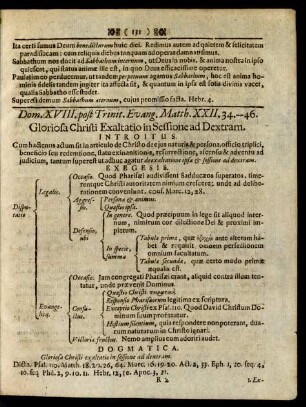 ( 131 )
Ita certi sumus Deum benedicturum huic diei. Redimus autem ad quietem & felicitatem
paradisiacam: cum reliquis diebus tanquam ad opera damnati simus.
Sabbathum nos docit ad Sabbathum internum, ut Deus in nobis, & anima nostra in ipso
quiescat, qui status animæ ille est, in quo Deus efficacissime operetur.
Paulatim eo perducemur, ut tandem perpetuum agamus Sabbathum, hoc est anima ho-
minis fidelis tandem jugiter ita affecta sit, & quantum in ipsa est solis divinis vacet,
qualis Sabbatho esse studet.
Superest demum Sabbathum æternum, cujus promissio facta. Hebr. 4.
Dom. XVIII. post Trinit. Evang. Matth. XXII, 34.--46.
Gloriosa Christi Exaltatio in Sessione ad Dextram.
INTROITUS.
Cum hactenus actum sit in articulo de Christo de ejus naturis & person. officio triplici,
beneficio seu redemtione, statu exinanitionis, resurrectione, ascensu & adventu ad
judicium, tantum superest ut adhuc agatur de exaltatione ipsa & sessione ad dexteram.
EXEGESIS.
Dispu-
tatio
Legalis.
Occasio. Quod Pharisæi audivissent Sadducæos superatos, time-
rentque Christi autoritatem nimium crescere; unde ad delibe-
rationem conveniunt. conf. Marc. 12, 28.
Aggres-
sio.
Persona & animus.
Quæstio ipsa.
Defensio,
ubi
In genere. Quod præcipuum in lege sit aliquid inter-
num, nimirum cor dilectione Dei & proximi im-
pletum.
In specie,
summa
Tabula prima, quæ ibid; ante alterum ha-
bet & requirit omnem perfectionem
omnium facultatum.
Tabula secunda, quæ certo modo primæ
æqualis est.
Evange-
lica.
Occasio. Jam congregati Pharisæi erant, aliquid contra illum ten-
tatur, unde prævenit Dominus.
Con-
flictus.
Quæstio Christi
Responsio Pharisæorum legitima ex scriptura.
Exceptio Christi ex Psal. 110. Quod David Christum Do-
minum suum profiteatur.
Hostium silentium, quia respondere non poterant, dua-
rum naturarum in Christo ignari.
Victoria fructus. Nemo amplius eum adoriri audet.
DOGMATICA.
Gloriosa Christi exaltatio in sessione ad dexteram.
Dicta. Psal. 110. Matth. 18. 20. 26, 64. Marc. 16. 19. 20. Act. 2, 33. Eph. 1, 20. seq. 4,
10. seq. Phil. 2, 9. 10. 11. Hebr. 12, 16. Apoc. 3, 21.
R 2 1. Ex-